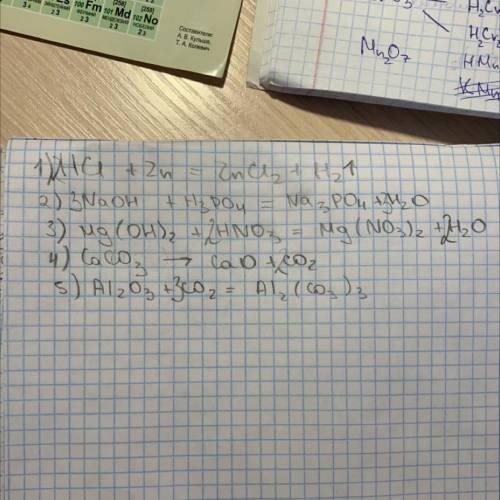 [258]
[258]
[258]
Es 100 Fm 101 Md 102 No
Составители:
А. В. Кульша,
Т. А. Колевич
H₂Cr
HMn
Mn₂O₇
1) 2HCl + Zn = ZnCl₂ + H₂↑
2) 3NaOH + H₃PO₄ = Na₃PO₄ + 3H₂O
3) Mg(OH)₂ + 2HNO₃ = Mg(NO₃)₂ + 2H₂O
4) CaCO₃ → CaO + CO₂
5) Al₂O₃ + 3CO₂ = Al₂(CO₃)₃